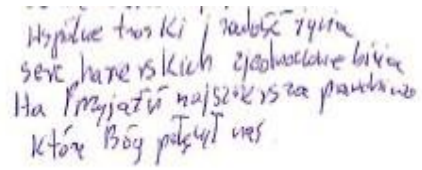 Wspólne troski i radość życia
serc harcerskich zjednoczone bicia
Ha Przyjaźń najszczersza
które Bóg połączył nas